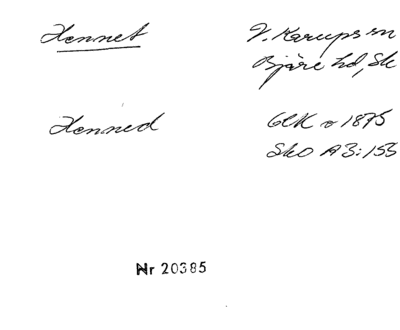 Hennet
V. Karups sn
Bjäre hd, Sk
Henned
GEK r 1875
SkO A3:155
Nr 20385